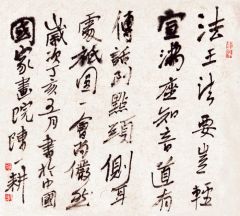 法王法要豈輕
宣滿座知音道有
傳話到點頭側耳
處祇園一會尚儼然
歲次丁亥五月書於中國
國家畫院陳一耕